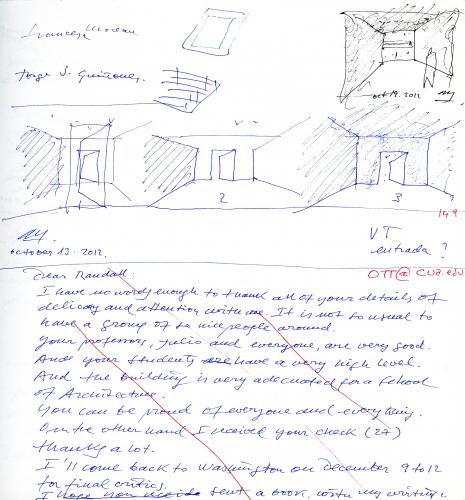 Francesa
Jorge S. Quiñones.
oct 19. 2012
2
3
149
october 13. 2012.
VT
entrada?
OTT@cua.edu
Dear Randall:
I have no words enough to thank all of your details of
delicacy and attention with me. It is not so usual to
have a group of so nice people around.
Your professors, Julio and everyone, are very good.
And your students have a very high level.
And the building is very adecuated for a School
of Architecture.
You can be proud of everyone and everything.
On the other hand I received your check (27)
thanks a lot.
I'll come back to Washington on December 9 to 12
for final critics.
I hope you sent a book, with my writing.